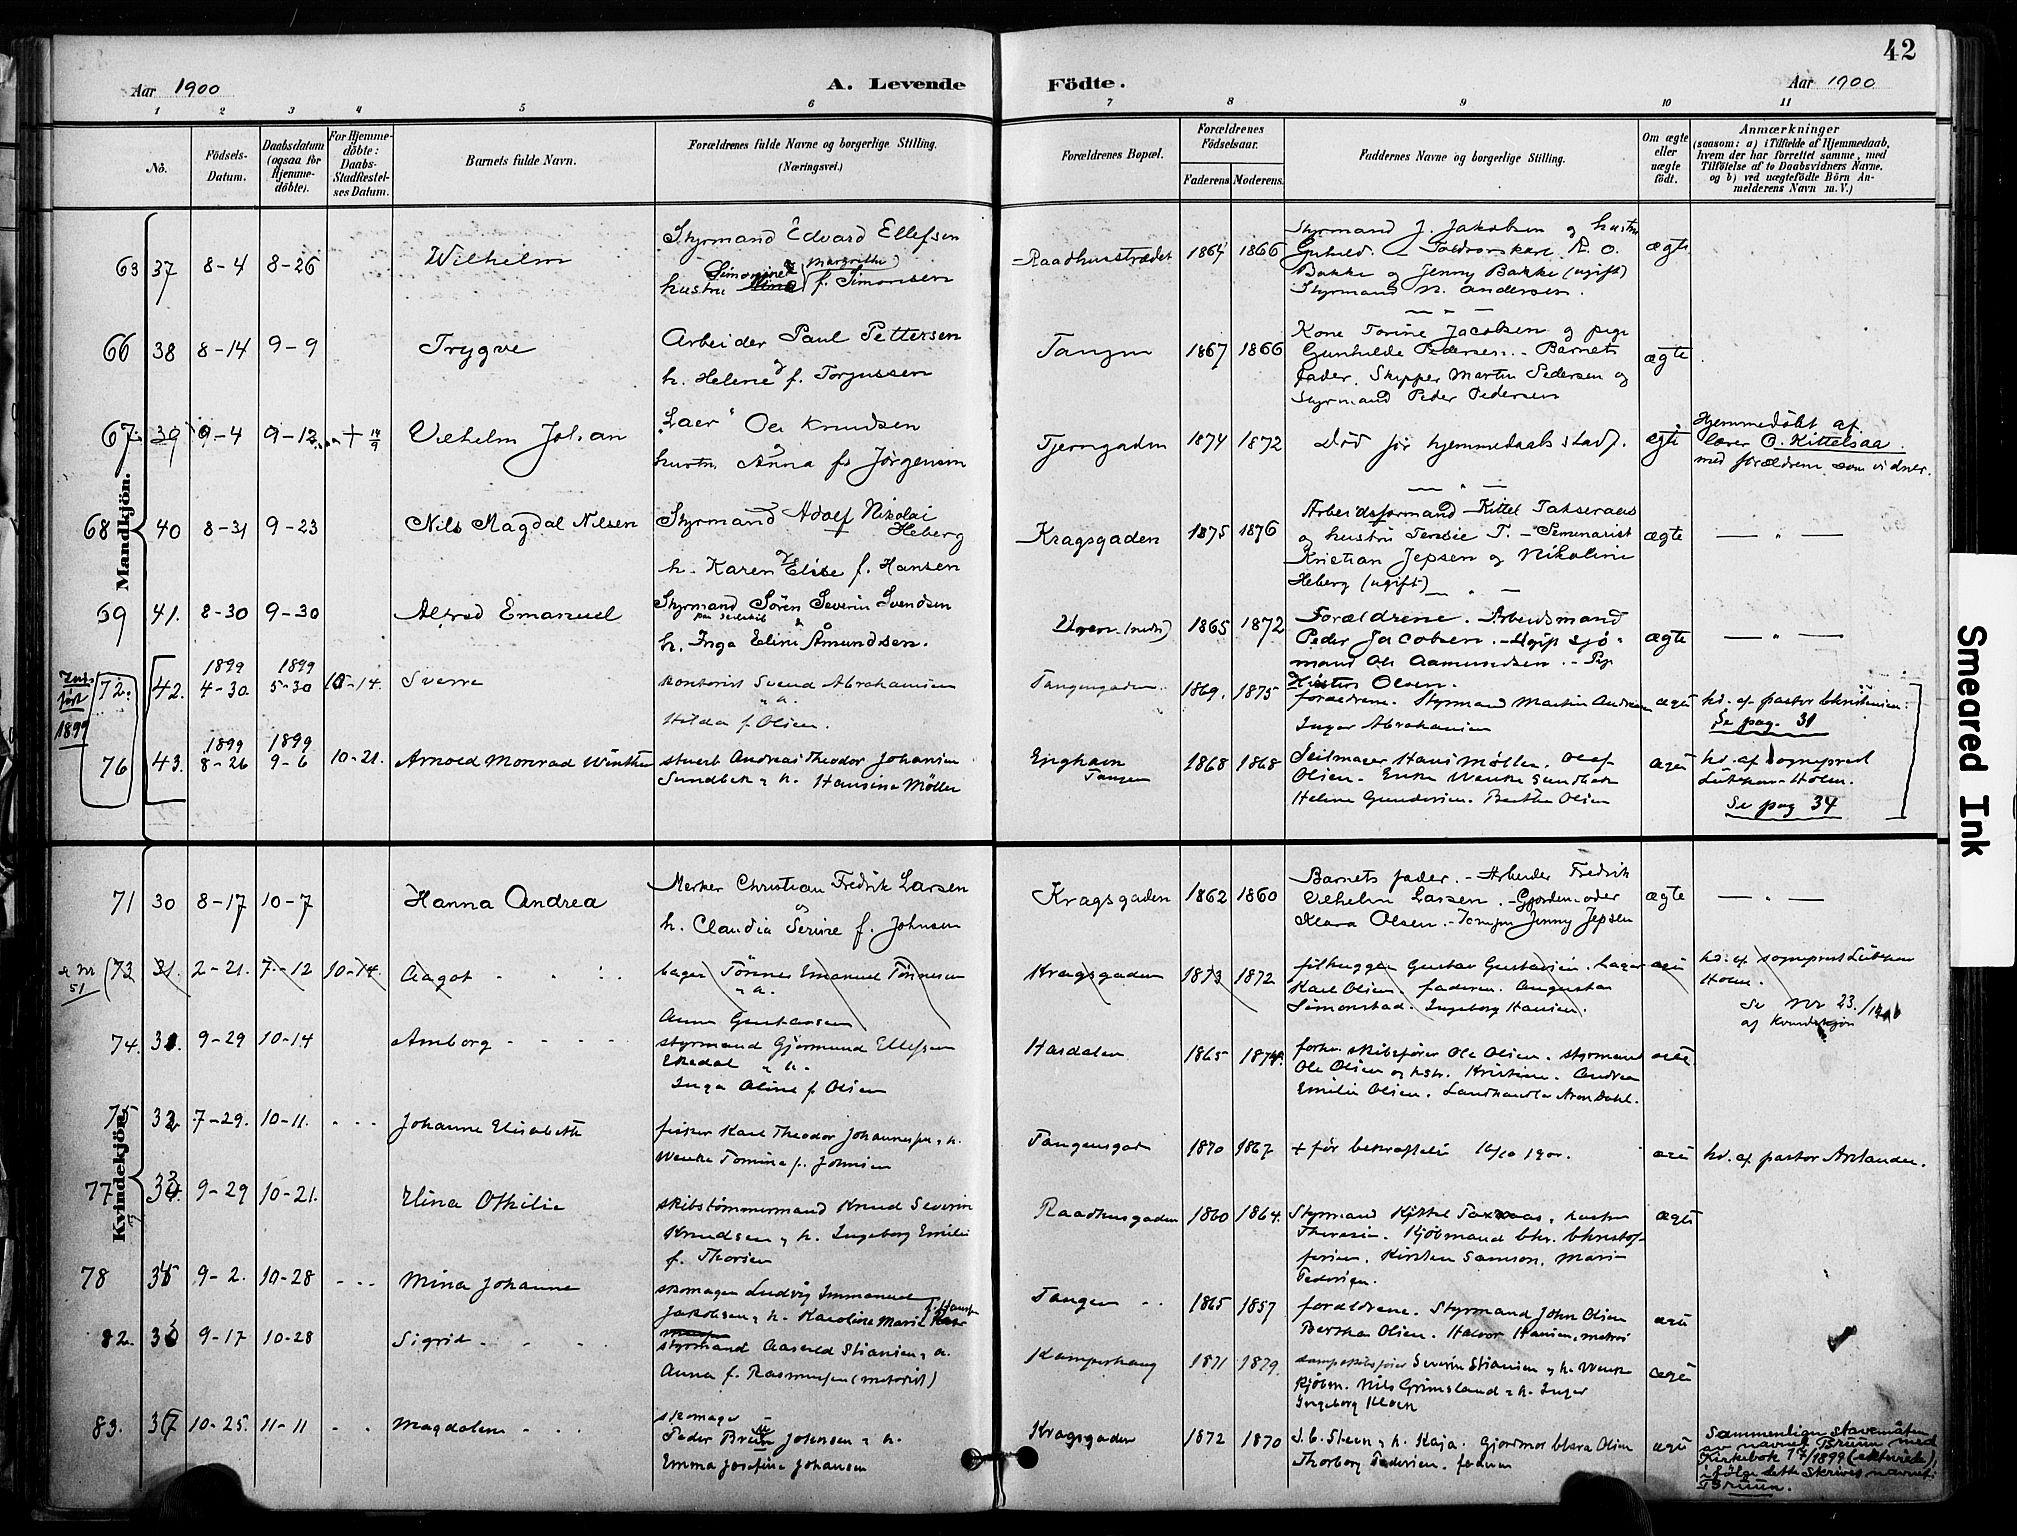 42
Aar 1900
A. Levende
Födte.
Aar 1900
1 2 3 4 5 6 7 8 9 10 11
No.
Födsels-Datum.
Daabsdatum (ogsaa for Hjemme-döbte).
For Hjemme-döbte: Daabs-Stadfæstel-ses Datum.
Barnets fulde Navn.
Forældrenes fulde Navne og borgerlige Stilling.
(Næringsvei.)
Forældrenes Bopæl.
Forældrenes Födselsaar.
Faderens Moderens
Faddernes Navne og borgerlige Stilling.
Om ægte eller uægte födt.
Anmærkninger
(saasom: a) i Tilfælde af Hjemmedaab,
hvem der har forrettet samme, med
Tilföielse af to Daabsvidners Navne,
og b) ved uægtefödte Börn An-
melderens Navn m. V.)
Mandkjön.
63 37 8-4 8-26 Wilhelm
Styrmand Edvard Ellefsen
hustru Simonine Margrithe f. Simonsen
Raadhusstrædet 1864 1866
Styrmand J. Jakobsen og hustru
Gunhild. Toldrorskarl R. O.
Bakke og Jenny Bakke (ugift)
Styrmand N. Andersen.
ægte
66 38 8-14 9-9 Trygve
Arbeider Paul Pettersen
og
h. Helene f. Torjussen
Tangen 1867 1866
Kone Torine Jacobsen og pige
Gunhilde Pedersen. - Barnets
fader. Skipper Martin Pedersen og
Styrmand Peder Pedersen
ægte
67 39 9-4 9-12 + 14/9 Vilhelm Johan
Laer Ole Knudsen
og
hustru Anna f. Jörgensen
Tjerngaden 1874 1872
Död för hjemmedaabs stadf.
ægte
Hjemmedöbt af
lærer O. Kittelsaa
med forældrene som vidner.
68 40 8-31 9-23 Nils Magdal Nilsen
Styrmand Adolf Nikolai
Heberg
og
h. Karen Elise f. Hansen
Kragsgaden 1875 1876
Arbeidsformand Kittel Takseraas
og hustru Terese T. - Seminarist
Kristian Jepsen og Nikoline
Heberg (ugift)
ægte
69 41. 8-30 9-30 Alfred Emanuel
Styrmand Sören Severin Svendsen
h. Inga Eline Åmundsen.
1865 1872
Forældrene. Arbeidsmand
Peder Jacobsen. - Ugift sjö-
mand Ole Aamundsen. - Pige
Olsen.
ægte
1899
72. 42. 1899 4-30 1899 5-30 10-14. Sverre
kontorist Svend Abrahamsen
Hilda f. Olsen.
Tangengaden 1869. 1875
forældrene. Styrmand Martin Andersen
Inger Abrahamsen
ægte
hd. af pastor Christensen.
Se pag. 31
76 43. 1899 8-26 1899 9-6 10-21. Arnold Monrad Winther
stuert Andreas Theodor Johansen
Sundbek & h. Hansine Möller
Tangen 1868 1868
Seilmager Hans Möller. Olaf
Olsen. Sundbek
Helene Gundersen. Berthe Olsen
ægte
hd. af sogneprest
Lübkow Holm.
Se pag 34
Kvindekjön.
71 30 8-17 10-7 Hanna Andrea
Merker Christian Fredrik Larsen
og
h. Claudia Serine f. Johnsen
Kragsgaden 1862 1860
Barnets fader. - Arbeider Fredrik
Vilhelm Larsen. - Gjordemoder
Klara Olsen. - Jomfru Jenny Jepsen
ægte
se nr 51
73 31. 2-21. 7-12 10-14. Aagot
bager Tönnes Emanuel Tönnesen
Anna Gustavsen
Kragsgaden 1873 1872
filhugger Gustav Gustavsen. bager
Karl Olsen. faderen. Augusta
Simonstad. Ingeborg Hansen.
ægte
hd. af sogneprest Lübkow
Holm.
Se nr 23.
af kvindekjön
74. 31. 9-29 10-14 Amborg
styrmand Gjermund Ellefsen
Ekedal & h.
Inga Oline f. Olsen
Hasdalen 1865 1874
forhv. skibsförer Ole Olsen. styrmand
Ole Olsen og hstr. Kristine. Andrea
Emilie Olsen. Landhandler Aron Dahl.
ægte
75 32 7-29. 10-11. Johanne Elisabeth
fisker Karl Theodor Johannesen & h.
Wenke Tomine f. Johnsen
Tangensgad 1870 1867
+ før bekræftelse 16/10 1900.
ægte
hd. af pastor Arlander.
77 33 9-29 10-21. Elina Othilie
skibstømmermand Knud Severin
Knudsen & h. Ingeborg Emilie
f. Thorsen
Raadhusgaden 1860 1864.
Styrmand Kjittel Taxeraas & hustru
Theresia. Kjöbmand Chr. Christof-
fersen. Kirsten Samson. Marie
Pedersen.
ægte
78 34 9-2. 10-28 Mina Johanne
skomager Ludvig Immanuel
Jakobsen & h. Karoline Marie f. Hansen
Tangen 1865 1857
forældrene. Styrmand John Olsen
Bertha Olsen. Halvor Hansen, matros
ægte
82. 35 9-17 10-28 Sigrid
styrmand Aasvald Stiansen & h.
Anna f. Rasmussen (metodist)
Kamperhaug 1871 1879
Severin Stiansen & h. Wenke
Kjöbm. Nils Grimsland & h. Inger
Ingeborg Klock
ægte
83. 36 10-25. 11-11 Magdalene
skomager
Peder Bruun Johnsen & h.
Emma Josefine Johansen
Kragsgaden 1872 1870
S. C. Steen & h. Kaja. Gjordmor Clara Olsen
Thorborg Pedersen. faderen
ægte
Sammenlign stavemåten
av navnet Bruun med
Kirkebok 1899 (ekteviede),
ifölge dette skrives navnet:
Bruun.
Smeared Ink